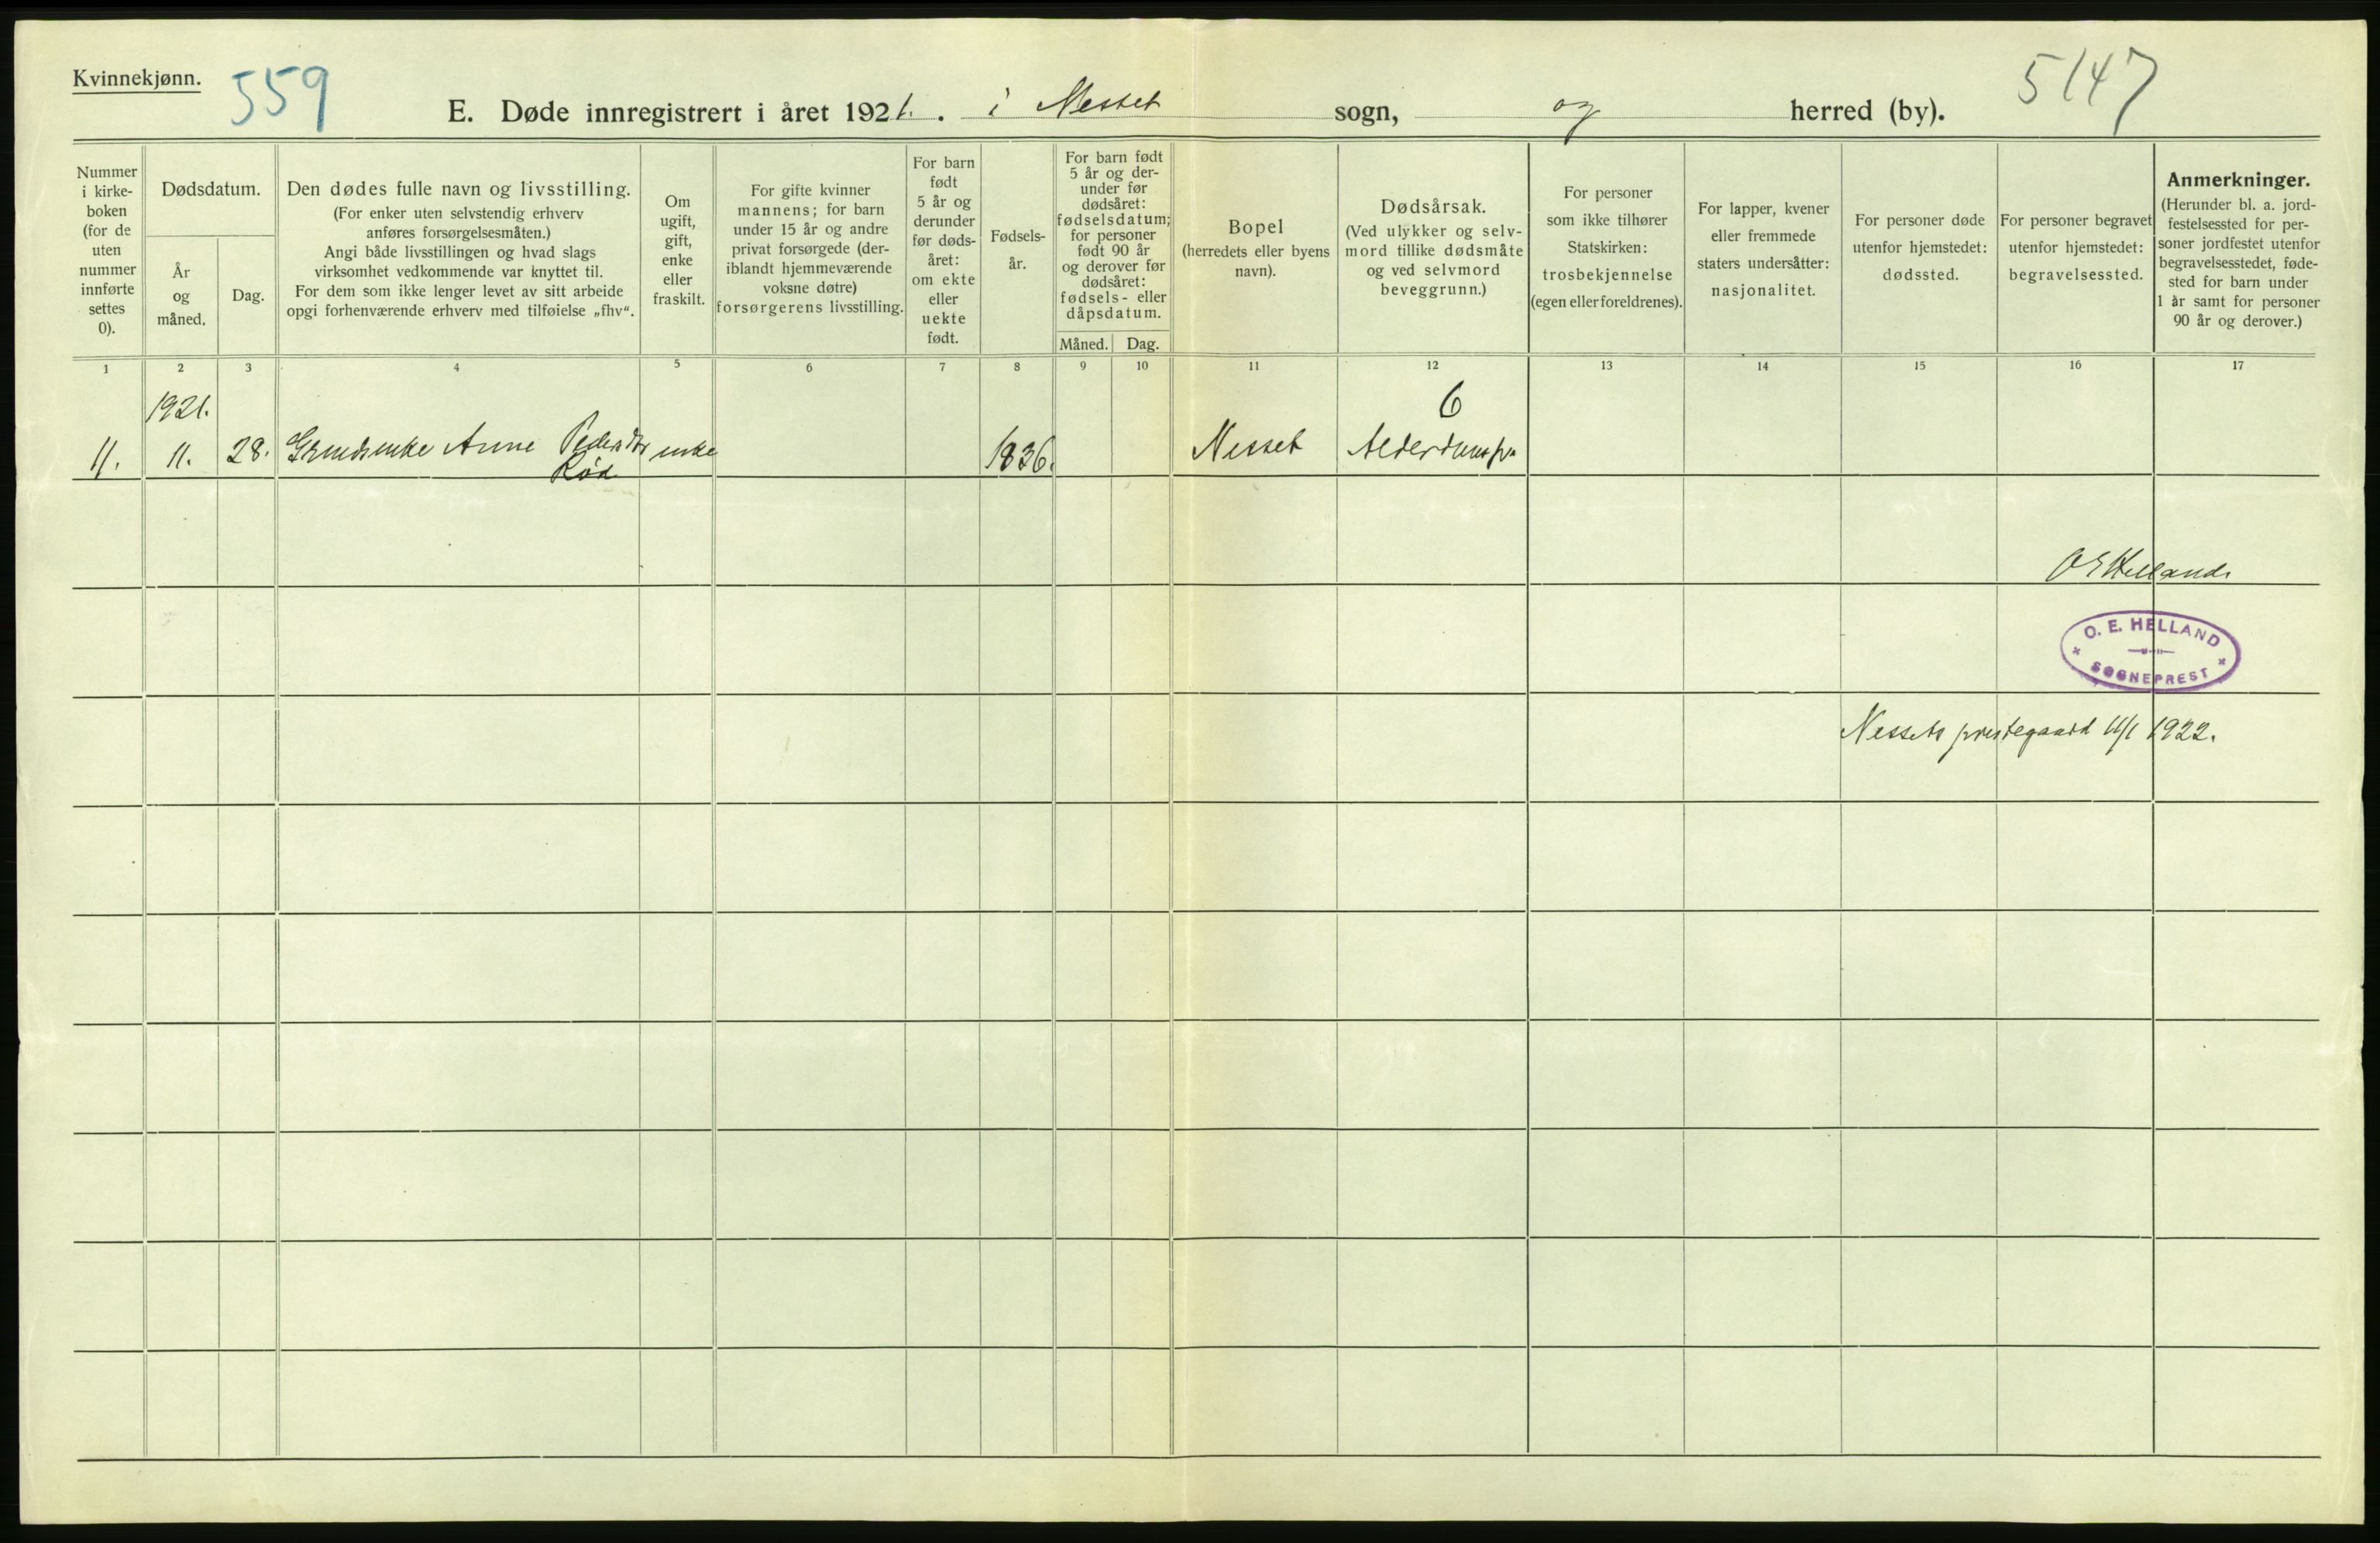 Kvinnekjønn.
559
5147
E. Døde innregistrert i året 1921. i Nesset sogn, og herred (by).
Nummer
i kirke-
boken
(for de
uten
nummer
innførte
settes
0).
Dødsdatum.
År
og
måned.
Dag.
Den dødes fulle navn og livsstilling.
(For enker uten selvstendig erhverv
anføres forsørgelsesmåten.)
Angi både livsstillingen og hvad slags
virksomhet vedkommende var knyttet til.
For dem som ikke lenger levet av sitt arbeide
opgi forhenværende erhverv med tilføielse „fhv“.
Om
ugift,
gift,
enke
eller
fraskilt.
For gifte kvinner
mannens; for barn
under 15 år og andre
privat forsørgede (der-
iblandt hjemmeværende
voksne døtre)
forsørgerens livsstilling.
For barn
født
5 år og
derunder
før døds-
året:
om ekte
eller
uekte
født.
Fødsels-
år.
For barn født
5 år og der-
under før
dødsåret:
fødselsdatum;
for personer
født 90 år
og derover før
dødsåret:
fødsels- eller
dåpsdatum.
Måned. Dag.
Bopel
(herredets eller byens
navn).
Dødsårsak.
(Ved ulykker og selv-
mord tillike dødsmåte
og ved selvmord
beveggrunn.)
For personer
som ikke tilhører
Statskirken:
trosbekjennelse
(egen eller foreldrenes).
For lapper, kvener
eller fremmede
staters undersåtter:
nasjonalitet.
For personer døde
utenfor hjemstedet:
dødssted.
For personer begravet
utenfor hjemstedet:
begravelsessted.
Anmerkninger.
(Herunder bl. a. jord-
festelsessted for per-
soner jordfestet utenfor
begravelsesstedet, føde-
sted for barn under
1 år samt for personer
90 år og derover.)
1 2 3 4 5 6 7 8 9 10 11 12 13 14 15 16 17
1921. 6
11. 11. 28. Anne Pedersdtr enke 1836. Nesset
Rød
O E Helland.
O. E. HELLAND
SOGNEPREST
Nessets prestegaard 11/1 1922.